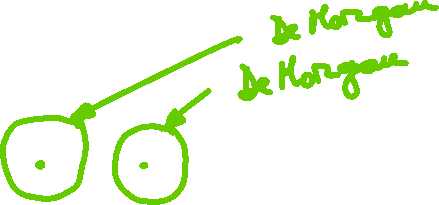 De Morgan
De Morgan